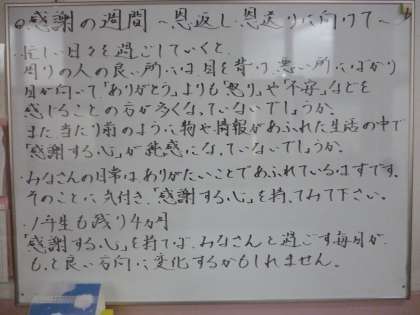 ◎感謝の週間 ～恩返し 恩送りに向けて～
・忙しい日々を過ごしていくと、
周りの人の良い所には、目を背け、悪い所にばかり
目が向いて「ありがとう」よりも「怒り」や「不安」などを
感じることの方が多くなっていないでしょうか。
また当たり前のように物や情報があふれた生活の中で
「感謝する心」が鈍感になっていないでしょうか。
・みなさんの日常はありがたいことであふれているはずです。
そのことに気付き、「感謝する心」を持ってみて下さい。
・1年生も残り4カ月
「感謝する心」を持てば、みなさんと過ごす毎日が、
もっと良い方向に変化するかもしれません。